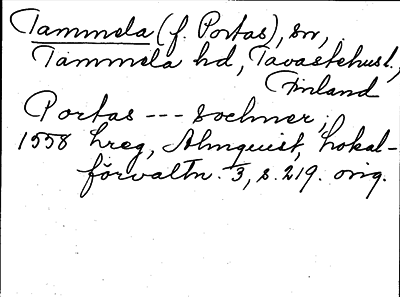 Tammela (f. Portas), sn,
Tammela hd, Tavastehusl.,
Finland
Portas --- sochner,
1558 hreg, Almquist, Lokal-
förvaltn. 3, s. 219. orig.